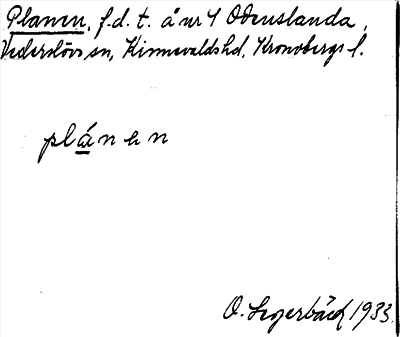 Planen, f.d. t. å nr 4 Odenslanda,
Vederslövs sn, Kinnevaldshd, Kronobergs l.
plánen
O. Segerbäck 1933.